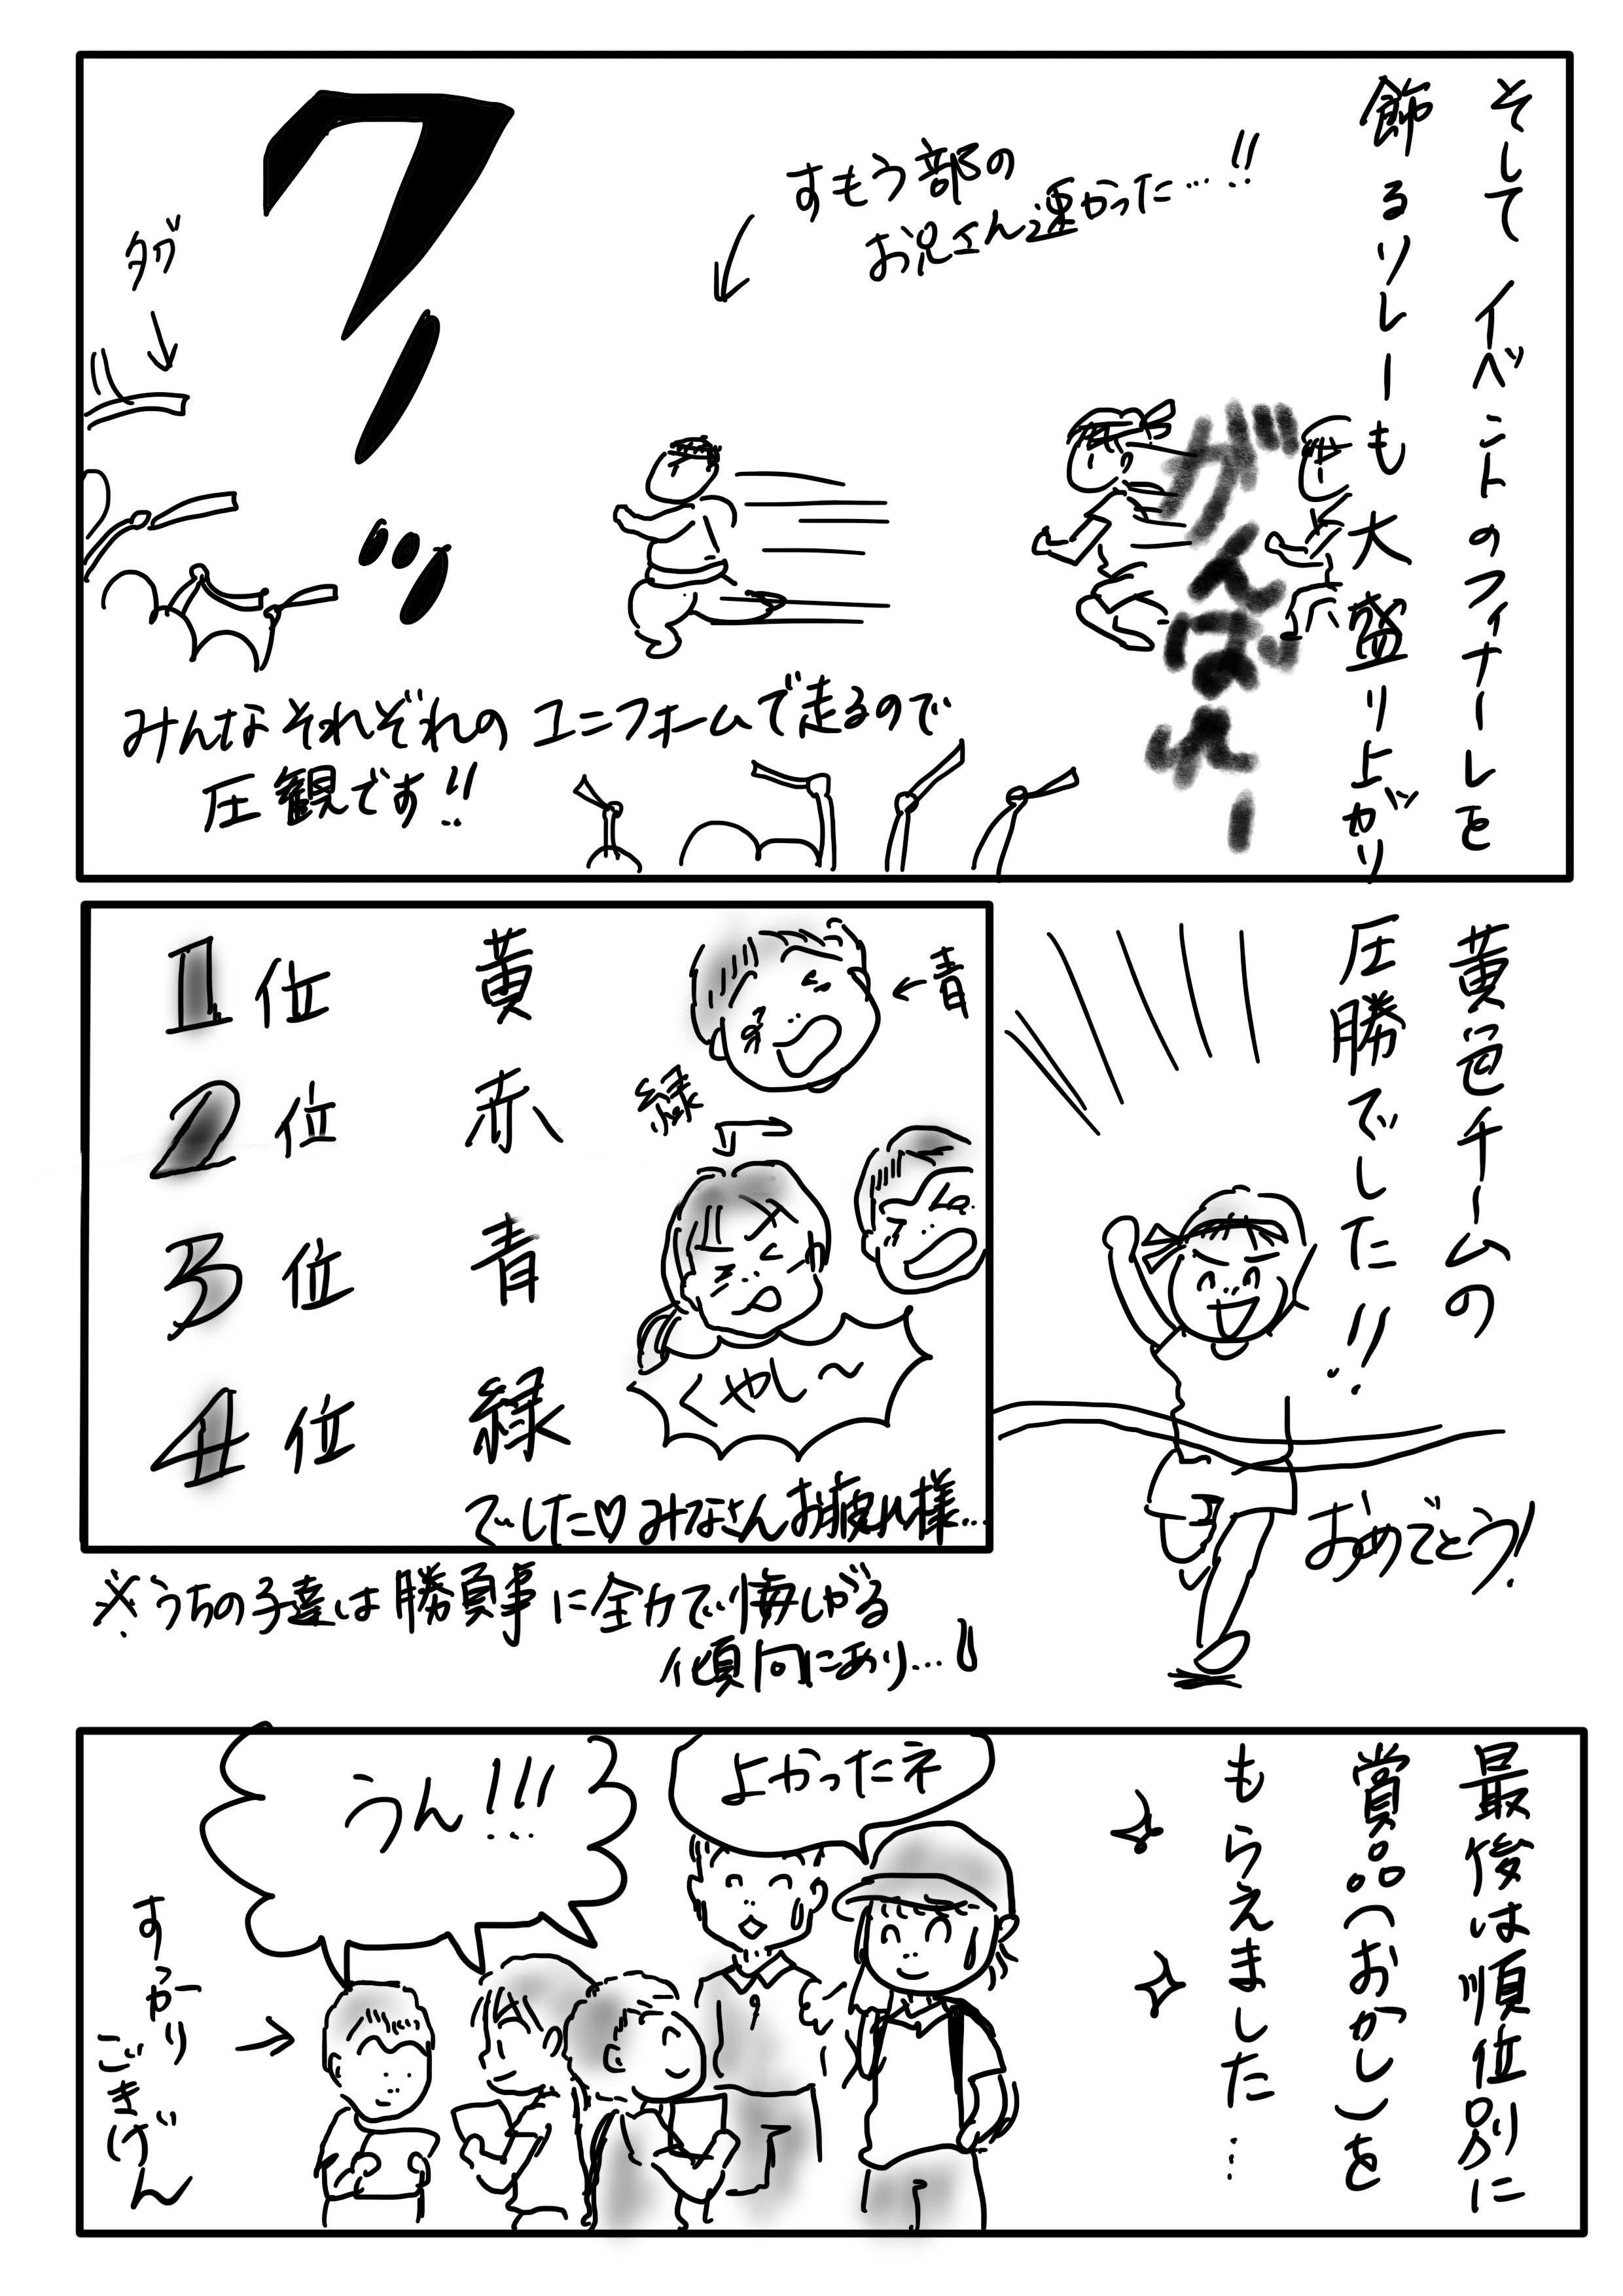 そしてイベントのフィナーレを
飾るリレーも大盛り上がり
がんばれー
すもう部の
お兄さん速かった…!!
ワーッ
タグ
みんなそれぞれのユニフォームで走るので
圧観です!!
黄色チームの
圧勝でした!!
おめでとう!
1位 黄
2位 赤
3位 青
4位 緑
←青
緑
くやし〜
でした♡みなさんお疲れ様…
※うちの子達は勝負事に全力で悔しがる
傾向にあり…
最後は順位別に
賞品(おかし)を
もらえました…
よかったネ
うん!!!
すっかり
ごきげん